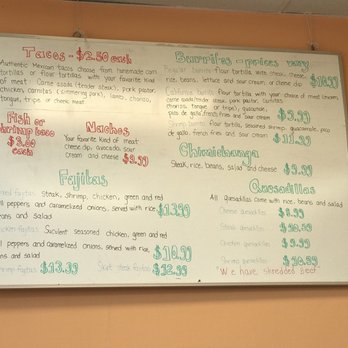 Tacos - $2.50 each
Authentic Mexican tacos choose from homemade corn
tortillas or flour tortillas with your favorite kind
of meat. Carne asada (tender steak), pork pastor,
chicken, carnitas (simmering pork), lamb, chorizo,
tongue, tripe or cheek meat
Fish or
shrimp taco
$3.50
each
Nachos
Your favorite kind of meat
cheese dip, avocado, sour
cream and cheese $9.99
Fajitas
Steak, shrimp, chicken, green and red
bell peppers and caramelized onions, served with rice,
beans and salad $13.99
Succulent seasoned chicken, green and red
bell peppers and caramelized onions, served with rice
beans and salad $10.99
Shrimp fajitas $13.99 Steak fajitas $12.99
Burritos - prices vary
flour tortilla with steak, cheese,
rice, beans, lettuce and sour cream, or cheese dip $10.99
California burrito flour tortilla with your choice of meat
carne asada, tender steak, pork pastor, carnitas
chorizo, tongue, or tripe), guacamole,
pico de gallo, french fries and sour cream $9.99
flour tortilla, seasoned shrimp, guacamole, pico
de gallo, french fries and sour cream $11.99
Chimichanga
Steak, rice, beans, salad and cheese $9.99
Quesadillas
All quesadillas come with rice, beans and salad
Cheese quesadillas $8.99
Steak quesadillas $10.99
Chicken quesadillas $9.99
Shrimp quesadillas $10.99
"We have shredded beef"